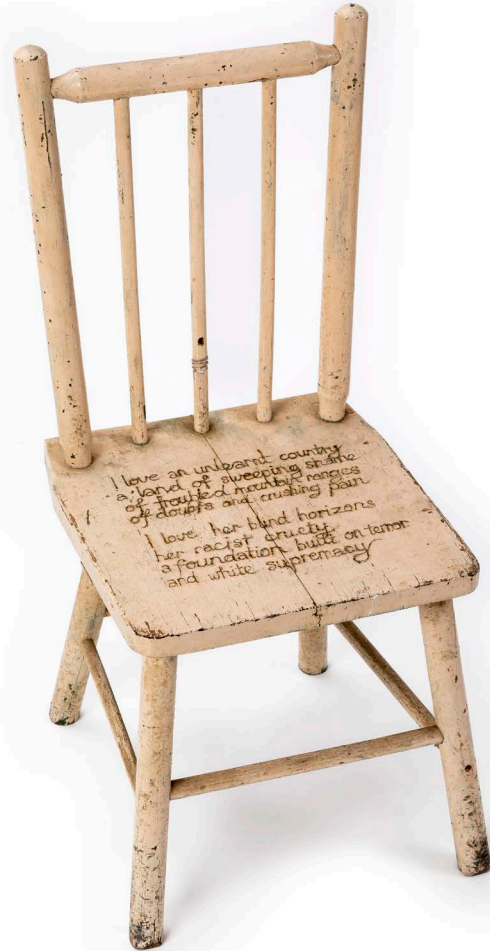 I love an unlearnt country
a land of sweeping shame
of troubled mountain ranges
of doubts and crushing pain
I love her blind horizons
her racist cruelty
a foundation built on terror
and white supremacy